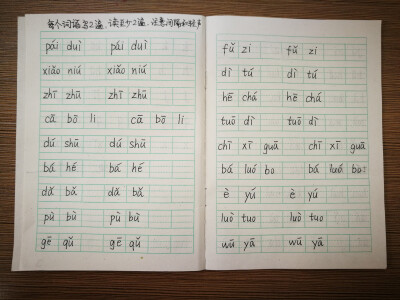 每个词语写2遍,读至少2遍,注意间隔和轻声
pái duì pái duì
xiǎo niú xiǎo niú
zhī zhū zhī zhū
cā bō li cā bō li
dú shū dú shū
bá hé bá hé
dǎ bǎ dǎ bǎ
pù bù pù bù
gē qǔ gē qǔ
fǔ zi fǔ zi
dì tú dì tú
hē chá hē chá
tuō dì tuō dì
chī xī guā chī xī guā
bá luó bo bá luó
è yú è yú
luò tuo luò tuo
wū yā wū yā